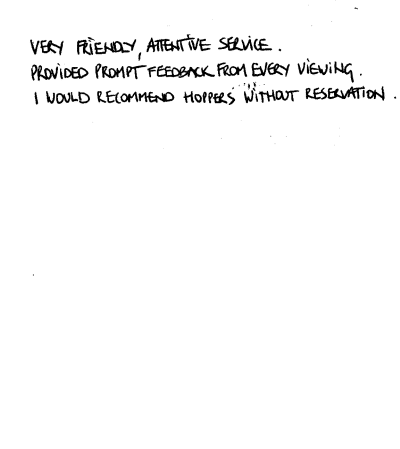 VERY FRIENDLY, ATTENTIVE SERVICE.
PROVIDED PROMPT FEEDBACK FROM EVERY VIEWING.
I WOULD RECOMMEND HOPPERS WITHOUT RESERVATION.